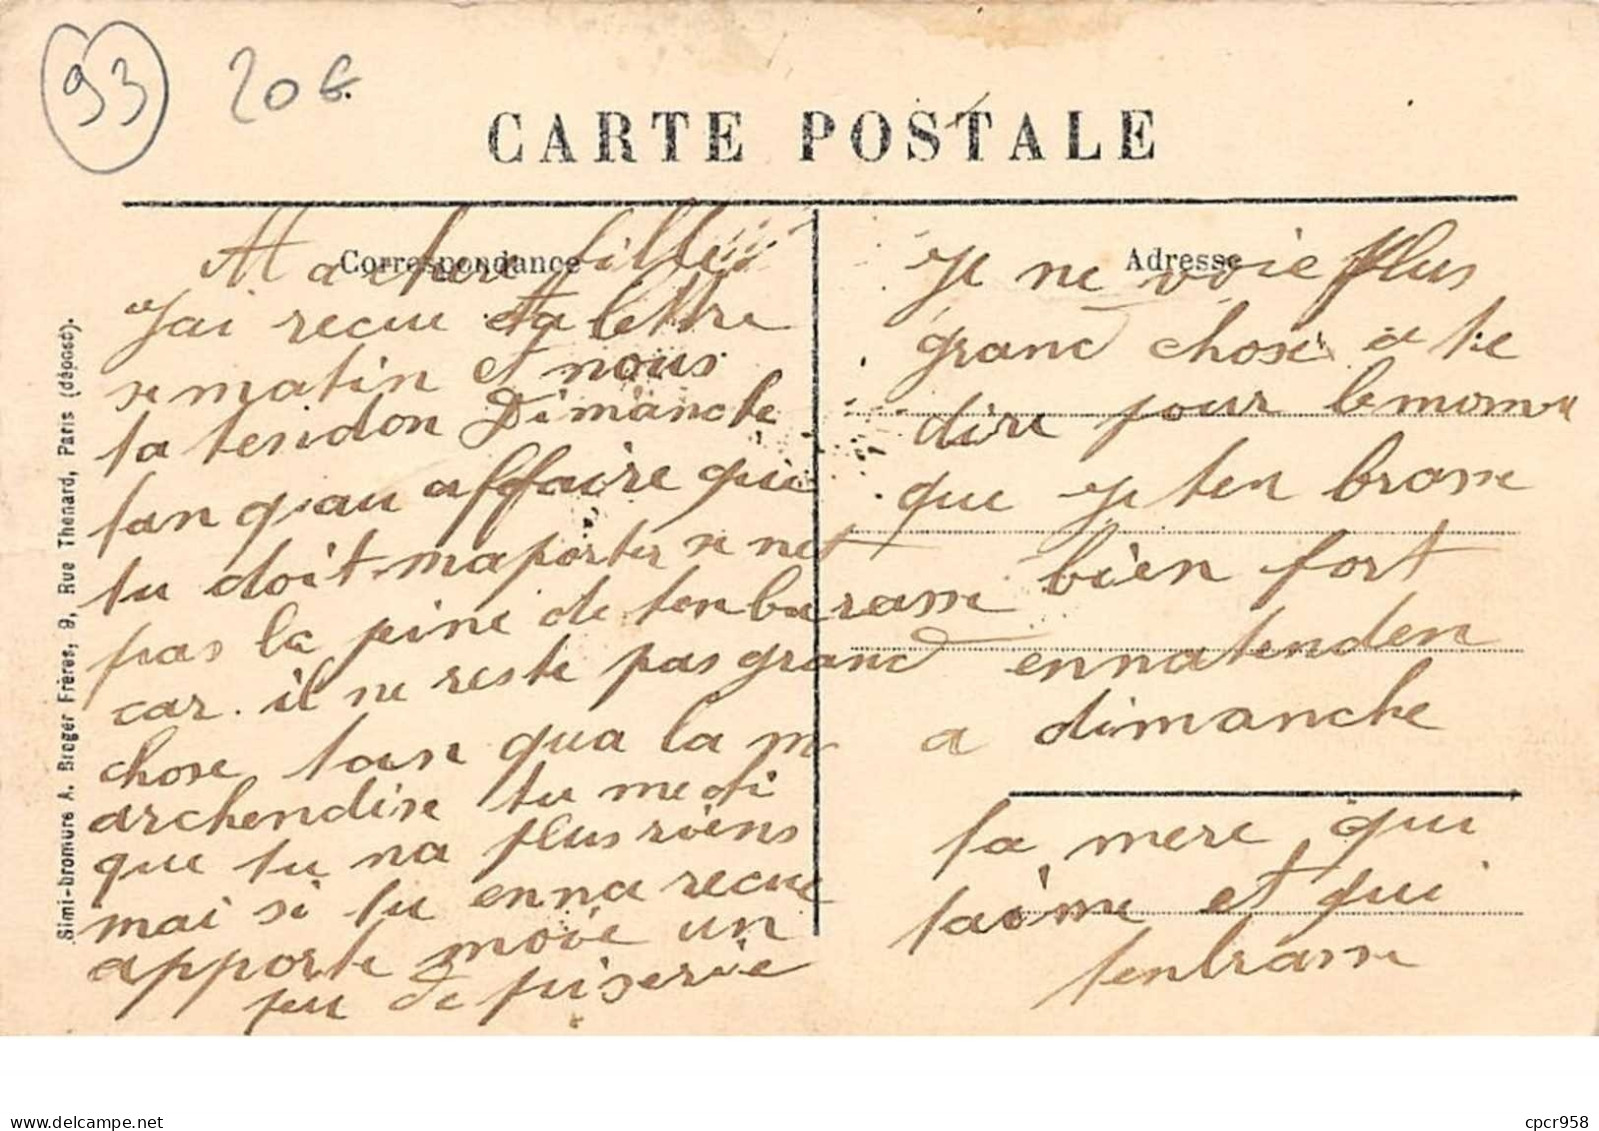 93
20€
CARTE POSTALE
Correspondance
Adresse
Ma cher fille
Jai recue ta lettre
se matin et nous
ta tendon Dimanche
tan qau affaire que
tu doit maporter se net
pas la peine de tenbarasse
car il ne reste pas grand
chose tan qua la m
archendise tu me di
que tu na plus riens
mai si tu enna recue
apporte moie un
peu de piserie
Je ne voie plus
grand chose a te
dire pour le moment
que je ten brasse
bien fort
ennatenden
a dimanche
ta mere qui
taime et qui
tenbrasse
Simi-bromure A. Breger Frères, 9, Rue Thenard, Paris (déposé).
cpcr958